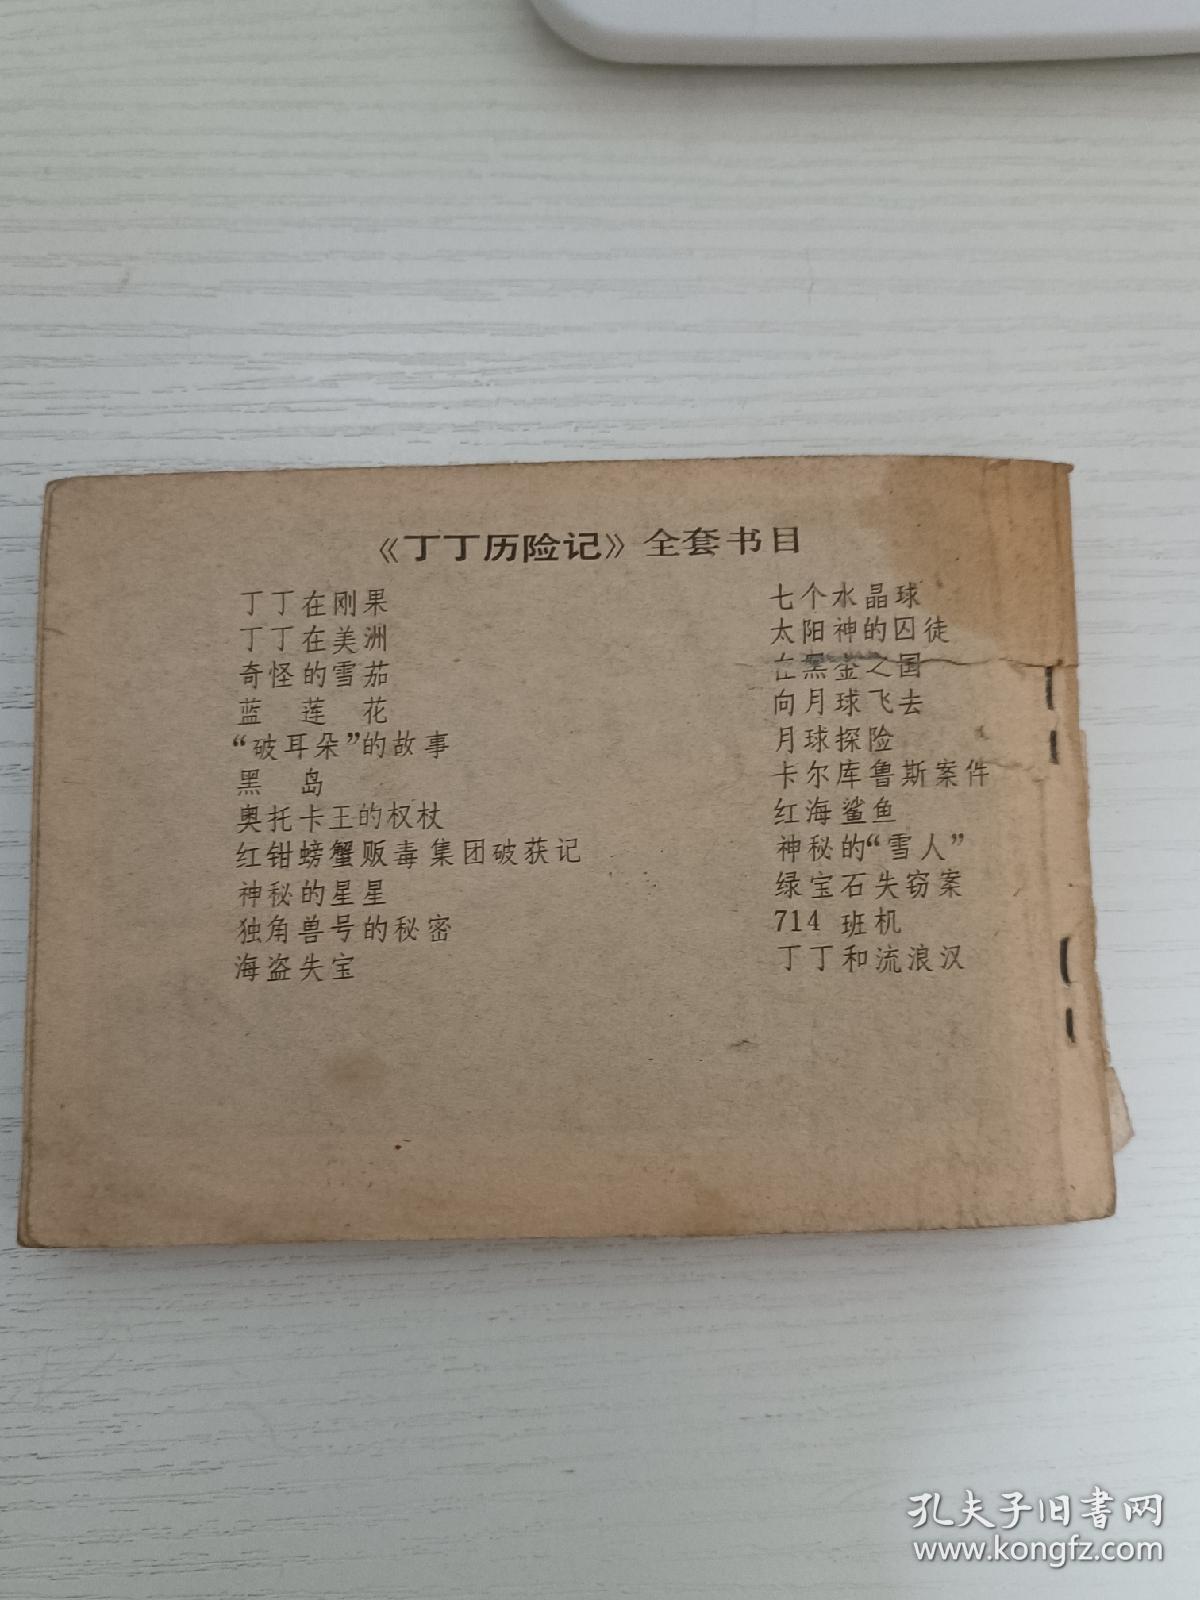 《丁丁历险记》全套书目
丁丁在刚果
丁丁在美洲
奇怪的雪茄
蓝 莲 花
“破耳朵”的故事
黑 岛
奥托卡王的权杖
红钳螃蟹贩毒集团破获记
神秘的星星
独角兽号的秘密
海盗失宝
七个水晶球
太阳神的囚徒
在黑金之国
向月球飞去
月球探险
卡尔库鲁斯案件
红海鲨鱼
神秘的“雪人”
绿宝石失窃案
714 班机
丁丁和流浪汉
孔夫子旧書网
www.kongfz.com